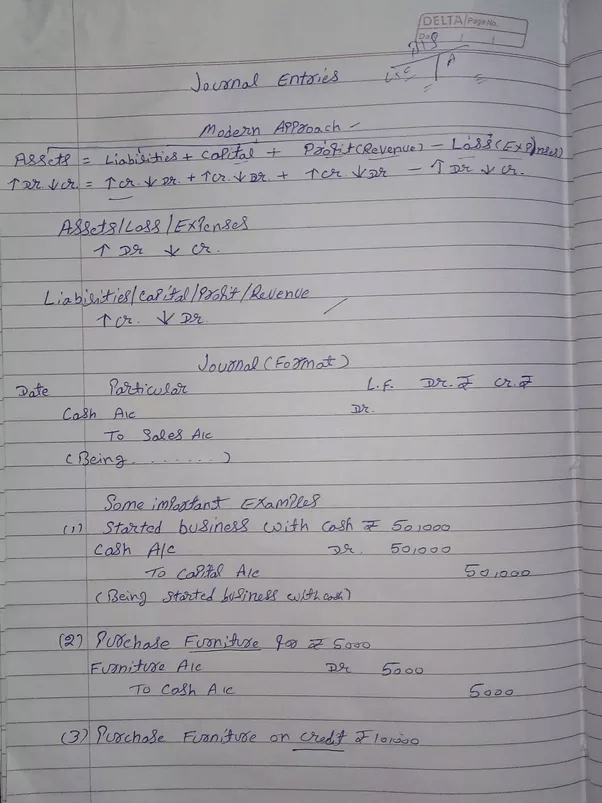 DELTA Page No.
Journal Entries
A
Modern Approach -
Assets = Liabilities + Capital + Profit (Revenue) - Loss (Expenses)
↑ Dr ↓ Cr = ↑ Cr ↓ Dr + ↑ Cr ↓ Dr + ↑ Cr ↓ Dr - ↑ Dr ↓ Cr.
Assets/Loss/Expenses
↑ Dr ↓ Cr.
Liabilities/Capital/Profit/Revenue
↑ Cr. ↓ Dr.
Journal (Format)
Date Particular L.F. Dr. ₹ Cr. ₹
Cash A/c Dr.
To Sales A/c
(Being ........)
Some important Examples
(1) Started business with cash ₹ 50,000
Cash A/c Dr. 50,000
To Capital A/c 50,000
(Being started business with cash)
(2) Purchase Furniture for ₹ 5000
Furniture A/c Dr 5000
To Cash A/c 5000
(3) Purchase Furniture on credit ₹ 10,000